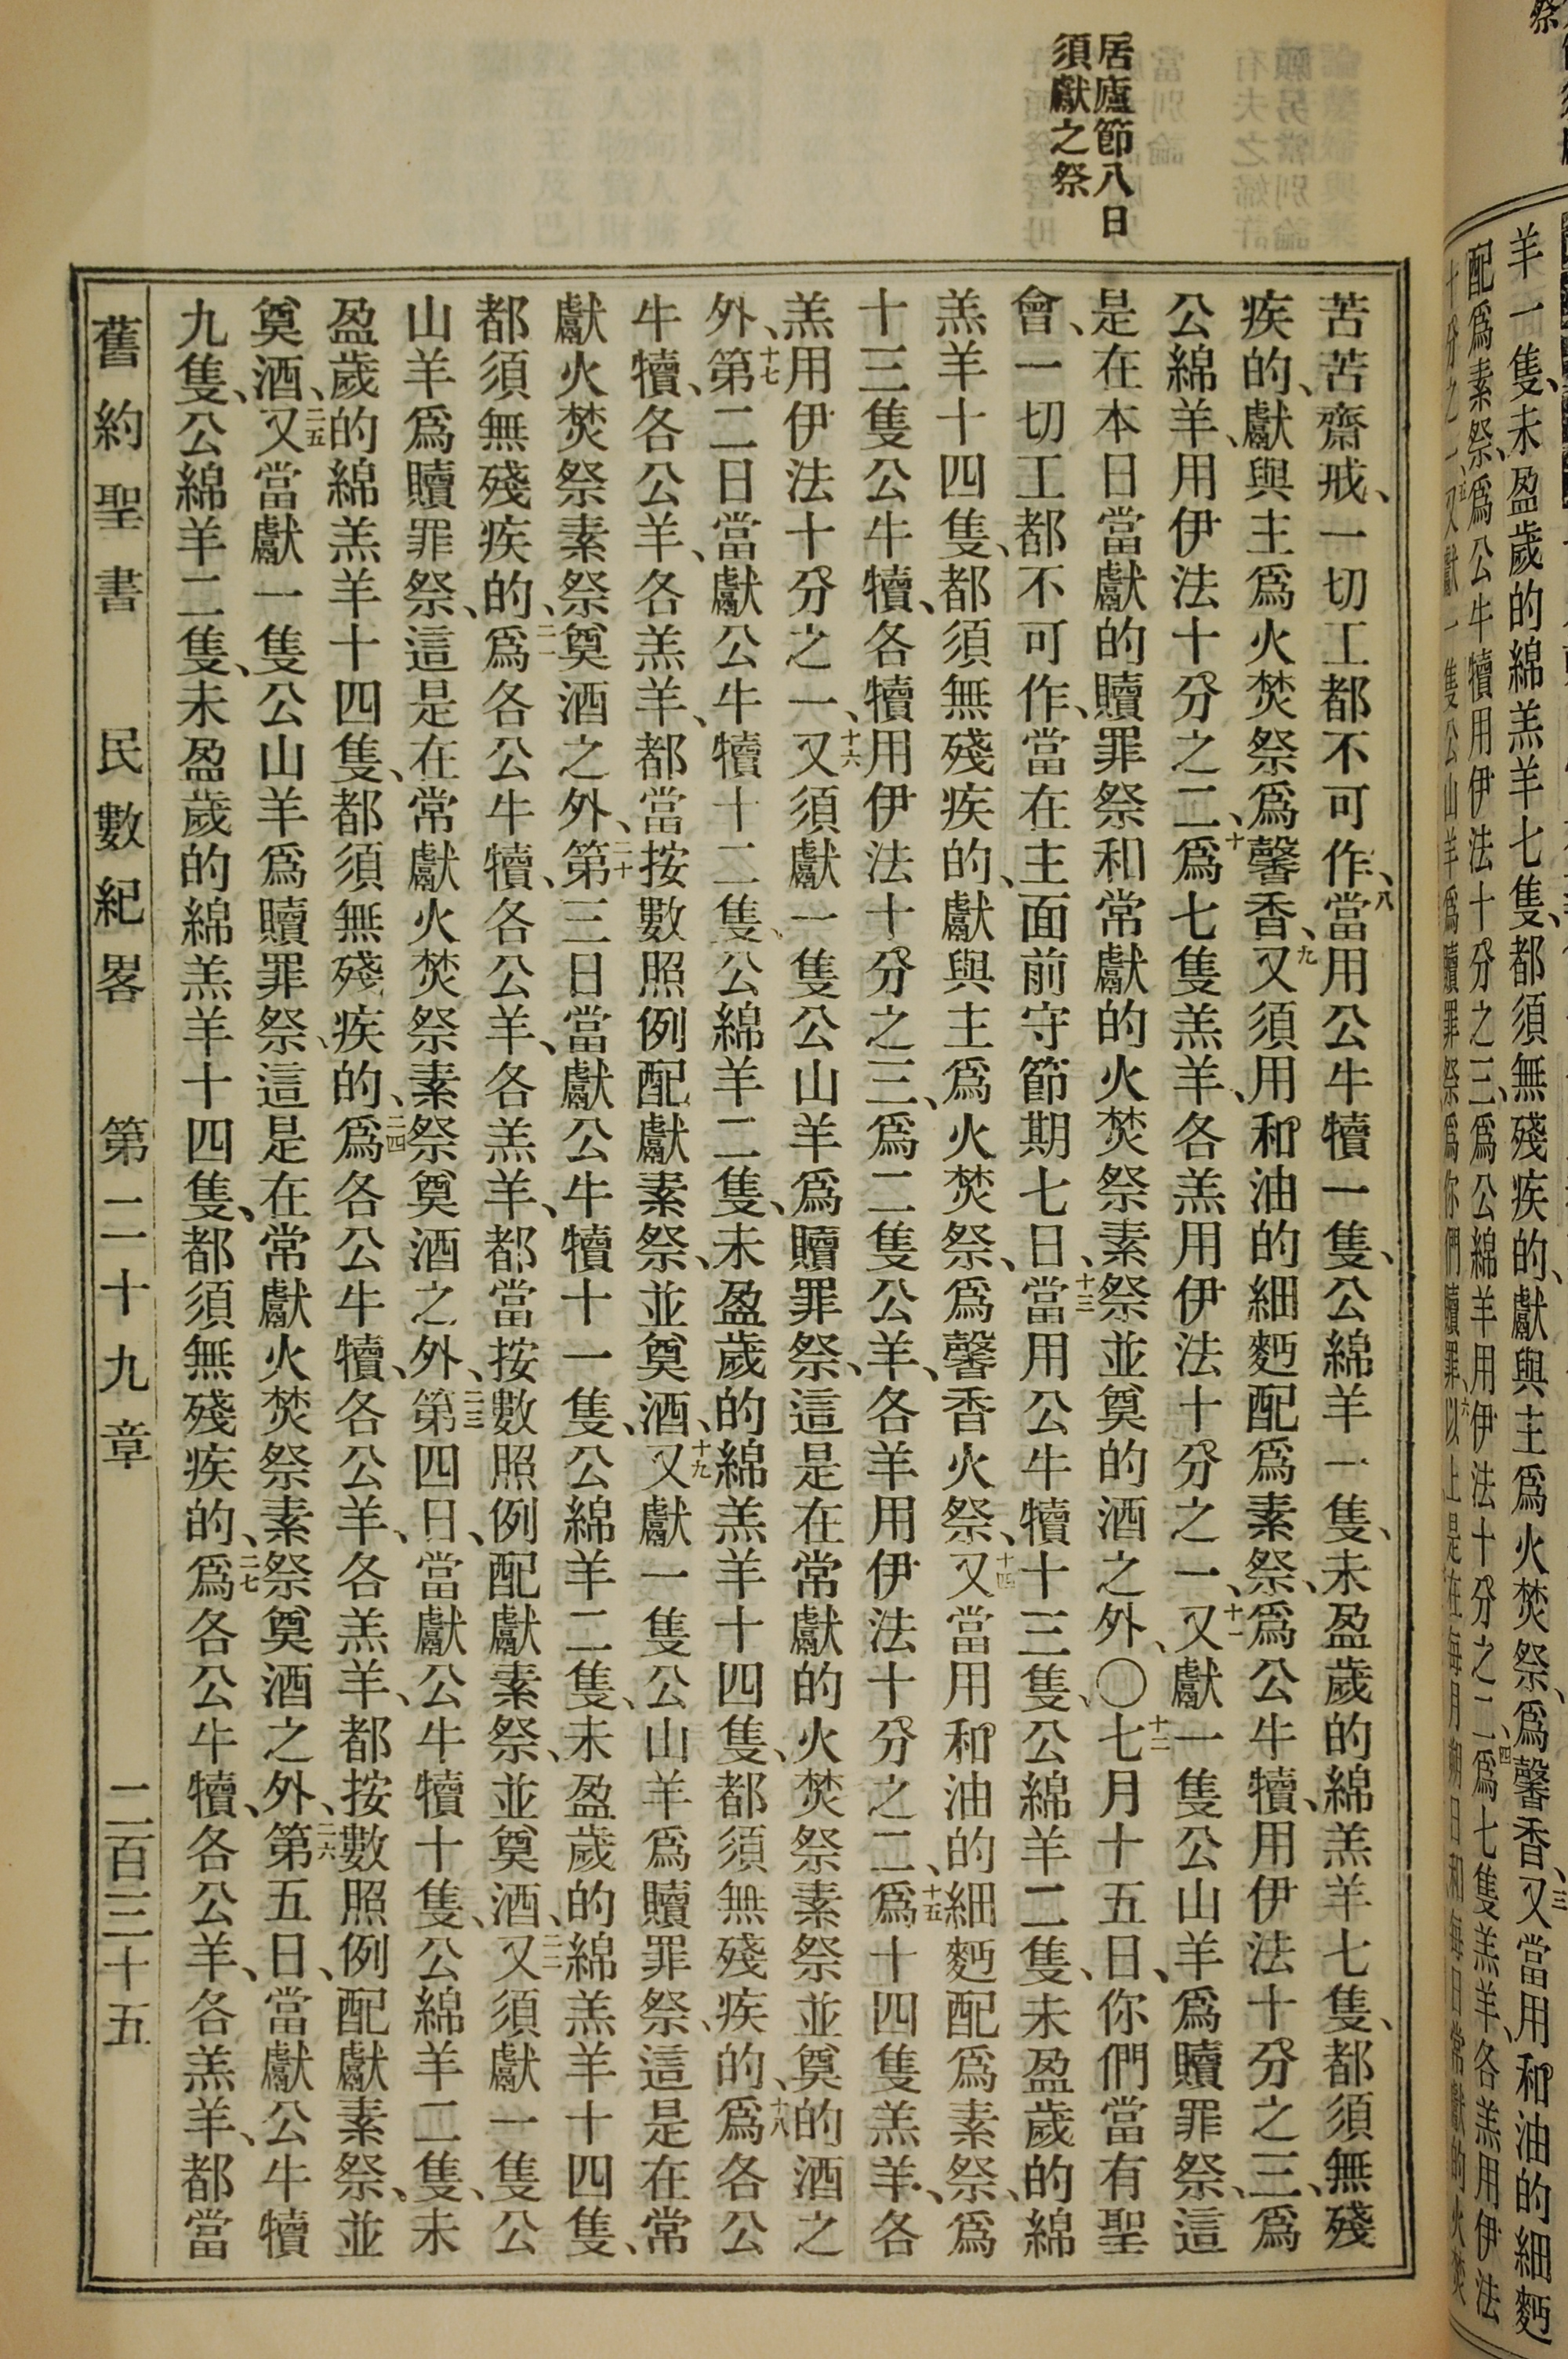 羊一隻、未盈歲的綿羔羊七隻、都須無殘疾的、獻與主爲火焚祭、爲馨香、三又當用和油的細麪
配爲素祭、爲公牛犢用伊法十分之三、爲公綿羊用伊法十分之二、四爲七隻羔羊、各羔用伊法
十分之一、五又獻一隻公山羊爲贖罪祭、爲你們贖罪、六以上是在每月朔日和每日常獻的火焚
居廬節八日
須獻之祭
苦苦齋戒、一切工都不可作、八當用公牛犢一隻、公綿羊一隻、未盈歲的綿羔羊七隻、都須無殘
疾的、獻與主爲火焚祭爲馨香、九又須用和油的細麪配爲素祭、爲公牛犢、用伊法十分之三、爲
公綿羊、用伊法十分之二、十爲七隻羔羊、各羔用伊法十分之一、十一又獻一隻公山羊爲贖罪祭、這
是在本日當獻的贖罪祭和常獻的火焚祭素祭並奠的酒之外、〇十二七月十五日、你們當有聖
會、一切工都不可作、當在主面前守節期七日、十三當用公牛犢十三隻、公綿羊二隻、未盈歲的綿
羔羊十四隻、都須無殘疾的、獻與主爲火焚祭、爲馨香火祭、十四又當用和油的細麪配爲素祭、爲
十三隻公牛犢、各犢用伊法十分之三、爲二隻公羊、各羊用伊法十分之二、十五爲十四隻羔羊、各
羔用伊法十分之一、十六又須獻一隻公山羊爲贖罪祭、這是在常獻的火焚祭素祭並奠的酒之
外、十七第二日當獻公牛犢十二隻、公綿羊二隻、未盈歲的綿羔羊十四隻、都須無殘疾的、十八爲各公
牛犢、各公羊、各羔羊、都當按數照例配獻素祭、並奠酒、十九又獻一隻公山羊爲贖罪祭、這是在常
獻火焚祭素祭奠酒之外、二十第三日當獻公牛犢十一隻、公綿羊二隻、未盈歲的綿羔羊十四隻、
都須無殘疾的、二一爲各公牛犢、各公羊、各羔羊、都當按數照例配獻素祭、並奠酒、二二又須獻一隻公
山羊爲贖罪祭、這是在常獻火焚祭素祭奠酒之外、二三第四日、當獻公牛犢十隻、公綿羊二隻、未
盈歲的綿羔羊十四隻、都須無殘疾的、二四爲各公牛犢、各公羊、各羔羊、都按數照例配獻素祭、並
奠酒、二五又當獻一隻公山羊爲贖罪祭、這是在常獻火焚祭素祭奠酒之外、二六第五日、當獻公牛犢
九隻、公綿羊二隻、未盈歲的綿羔羊十四隻、都須無殘疾的、二七爲各公牛犢、各公羊、各羔羊、都當
舊約聖書　民數紀畧　第二十九章　二百三十五